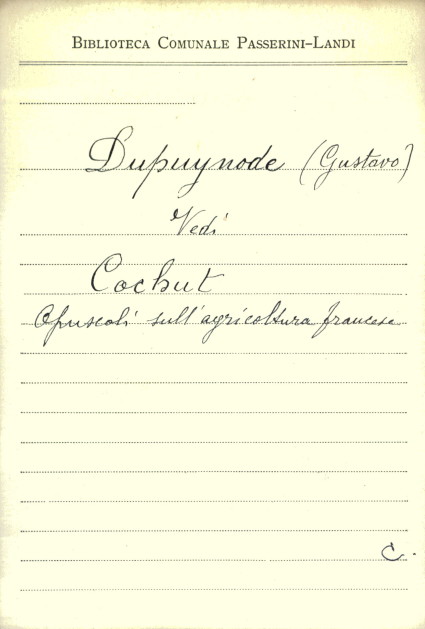 BIBLIOTECA COMUNALE PASSERINI-LANDI
Dupuynode (Gustavo)
Vedi
Cochut
Opuscoli sull'agricoltura francese
C.